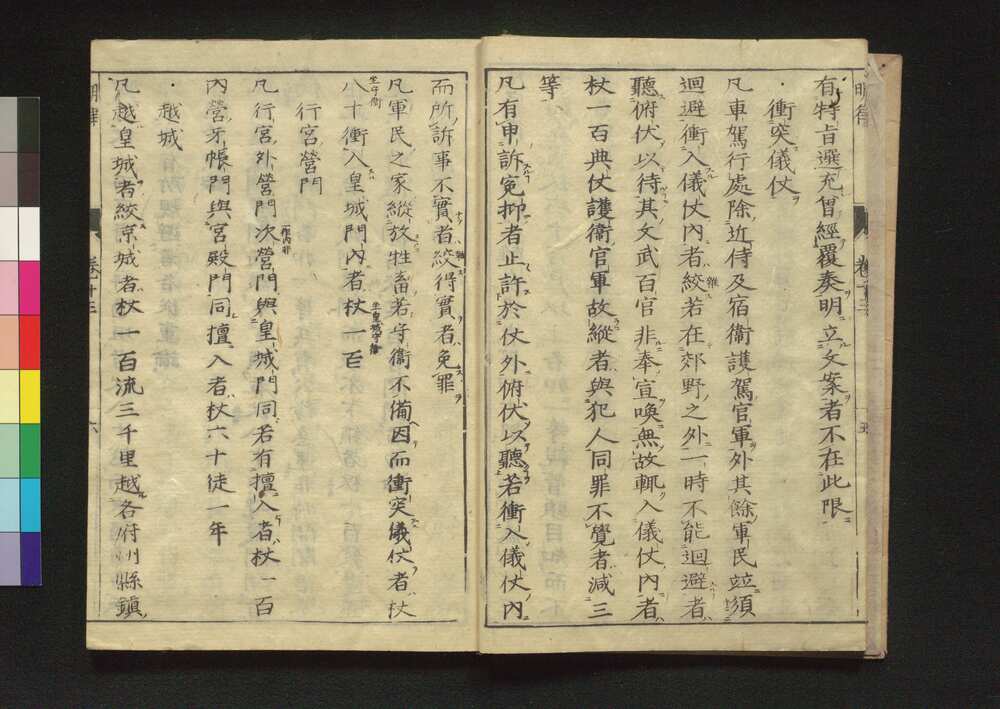 有特旨選充曾經覆奏明立文案者不在此限
・衝突儀仗
凡車駕行處除近侍及宿衛護駕官軍外其餘軍民並須
迴避衝入儀仗內者絞若在郊野之外一時不能迴避者
聽俯伏以待其文武百官非奉宣喚無故輒入儀仗內者
杖一百典仗護衛官軍故縱者與犯人同罪不覺者減三
等
凡有申訴冤抑者止許於仗外俯伏以聽若衝入儀仗內
而所訴事不實者絞得實者免罪
凡軍民之家縱放牲畜若守衛不備因而衝突儀仗者杖
八十衝入皇城門內者杖一百
行宮營門
凡行宮外營門次營門與皇城門同若有擅入者杖一百
內營牙帳門與宮殿門同擅入者杖六十徒一年
・越城
凡越皇城者絞京城者杖一百流三千里越各府州縣鎮